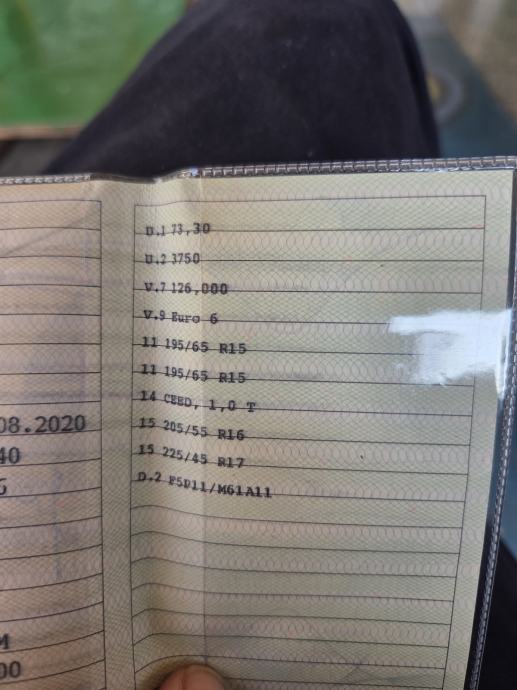 U.1 73,30
U.2 3750
V.7 126,000
V.9 Euro 6
11 195/65 R15
11 195/65 R15
14 CEED, 1,0 T
15 205/55 R16
15 225/45 R17
D.2 F5P11/M61A11
08.2020
40
M
00